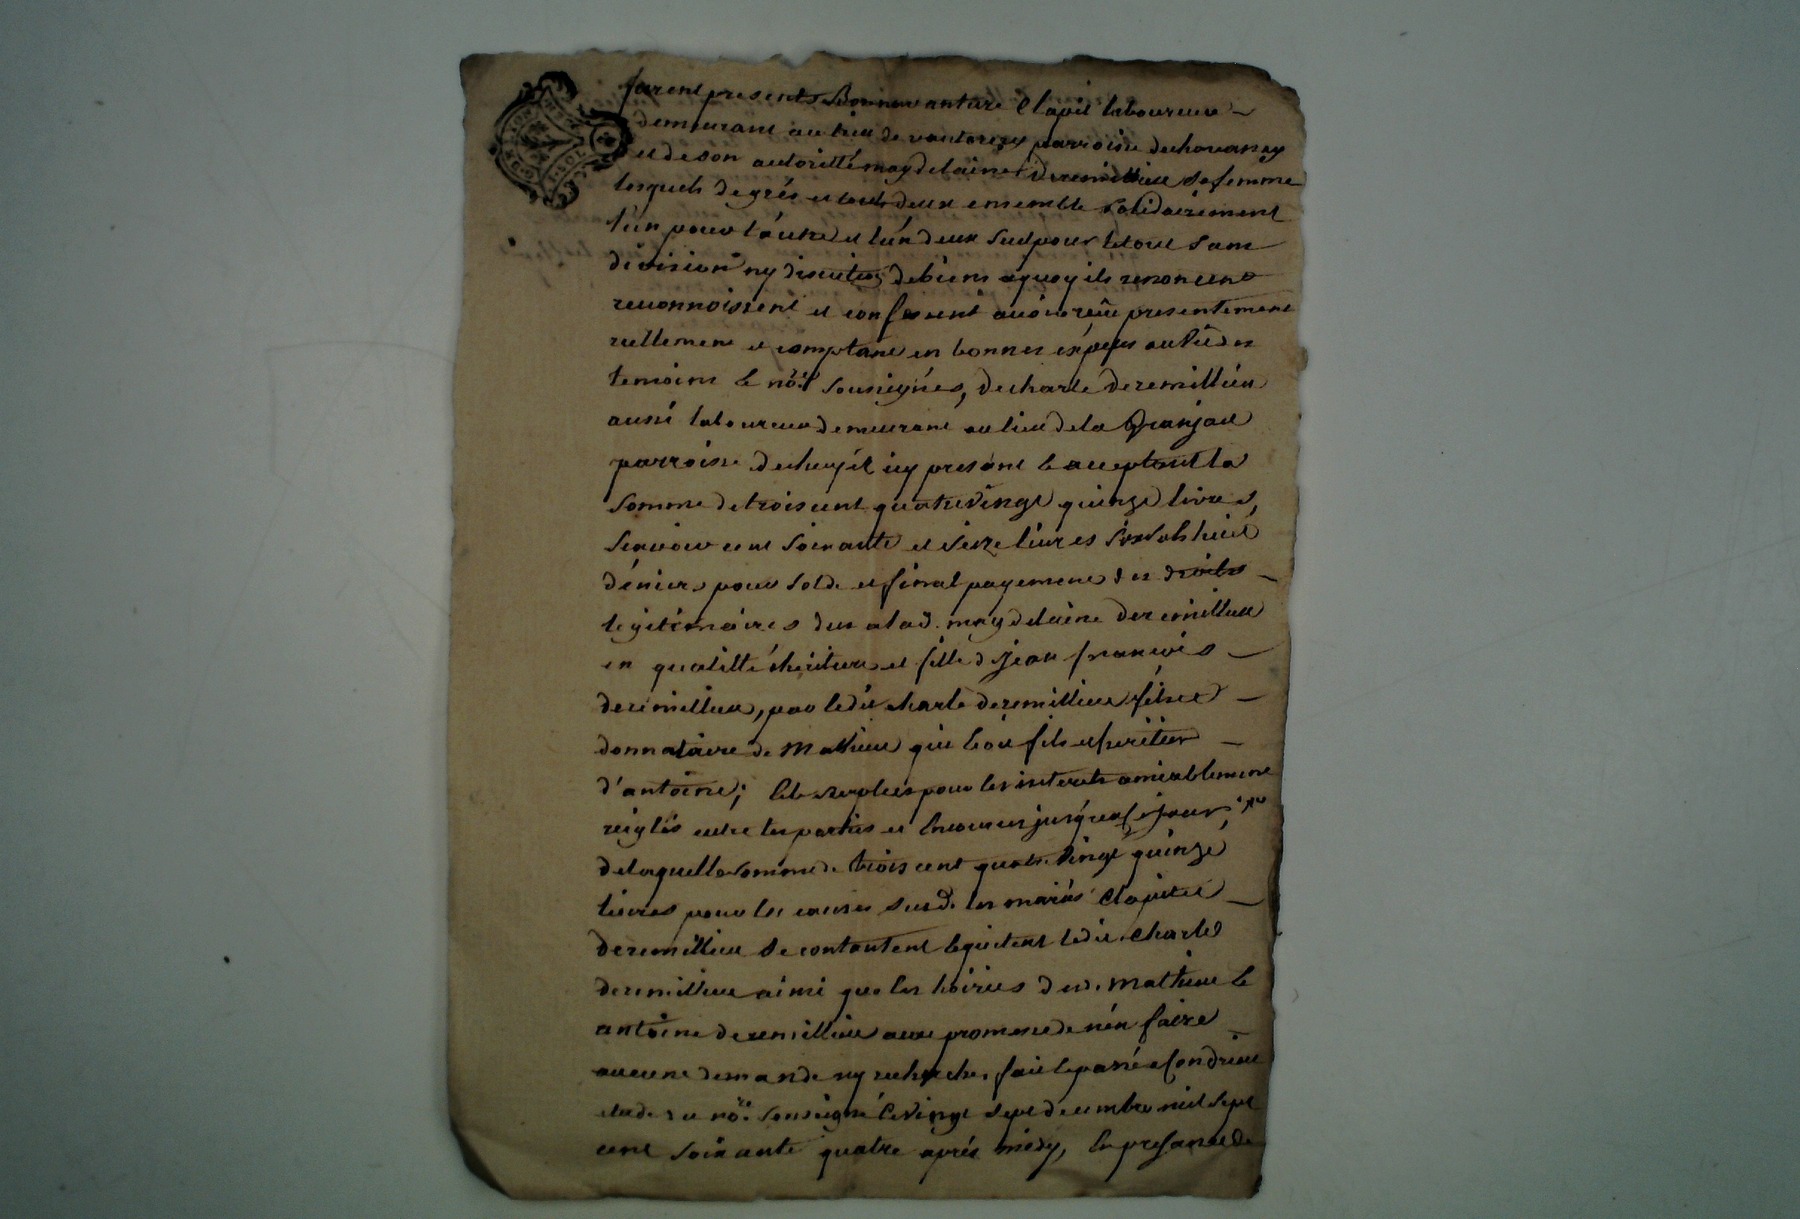 furent presents Bonnavanture Clapit laboureur
demeurant au lieu de parroisse de chavanay
et de son autoritté magdelaine deremillieu sa femme
lesquels de grés et touts deux ensemble solidairement
l'un pour l'autre et l'un deux seul pour le tout sans
division ny discution de biens a quoy ils renoncent
reconnoissent et confessent avoir reçu presentement
reellement et comptant en bonnes espeçes au vû des
temoins & nore soussignés, de charle deremillieu
aussi laboureur demeurant au lieu de la Granjati
parroisse de icy present & acceptant la
somme de trois cent quatre vingt quinze livres,
scavoir cent soixante et seize livres six sols huit
déniers pour solde et final payement des droits
legitimaires dus a lad. magdelaine deremillieu
en qualitté d'heritiere et fille de jean françois
deremillieu, par ledit charle deremillieu fils et
donnataire de Mathieu qui étoit fils et heritier
d'antoine; & le surplus pour les interets amiablement
reiglés entre les parties et encourus jusqu'a ce jour;
de laquelle somme de trois cent quatre vingt quinze
livres pour les causes susd. les mariés Clapit et
deremillieu se contentent & quittent ledit Charle
deremillieu ainsi que les hoiries desd. mathieu &
antoine deremillieu avec promesse de n'en faire
aucune demande ny recherche. fait & passé a Condrieu
etude du nore. soussigné le vingt sept decembre mil sept
cent soixante quatre aprés midy, en presance de